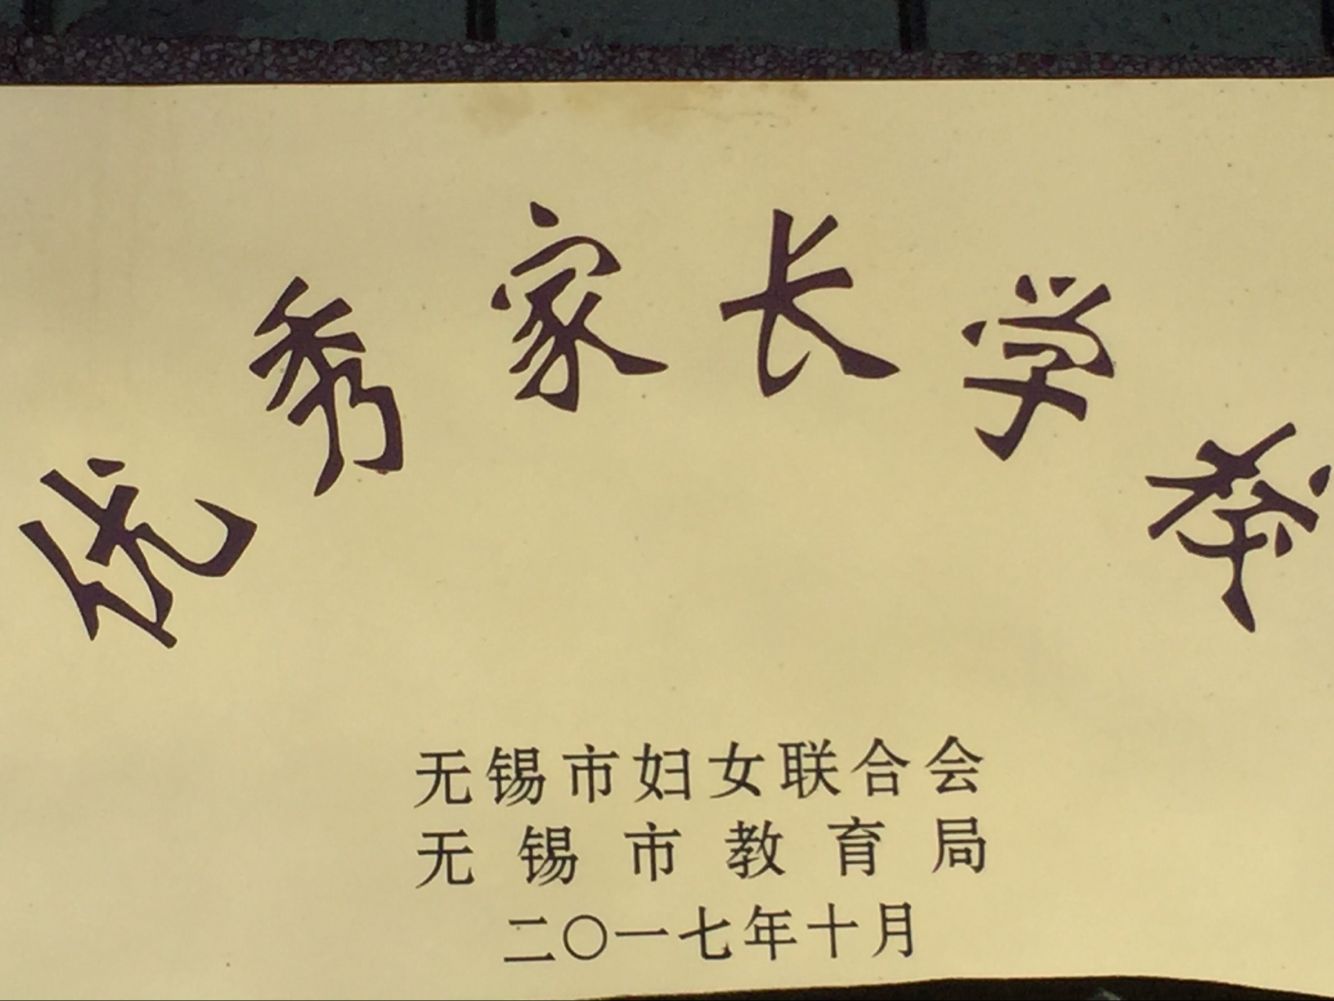 优秀家长学校
无锡市妇女联合会
无锡市教育局
二〇一七年十月